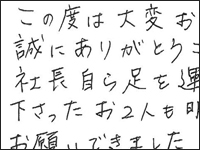 この度は大変お
誠にありがとうご
社長自ら足を運
下さったお2人も明
お願いできました